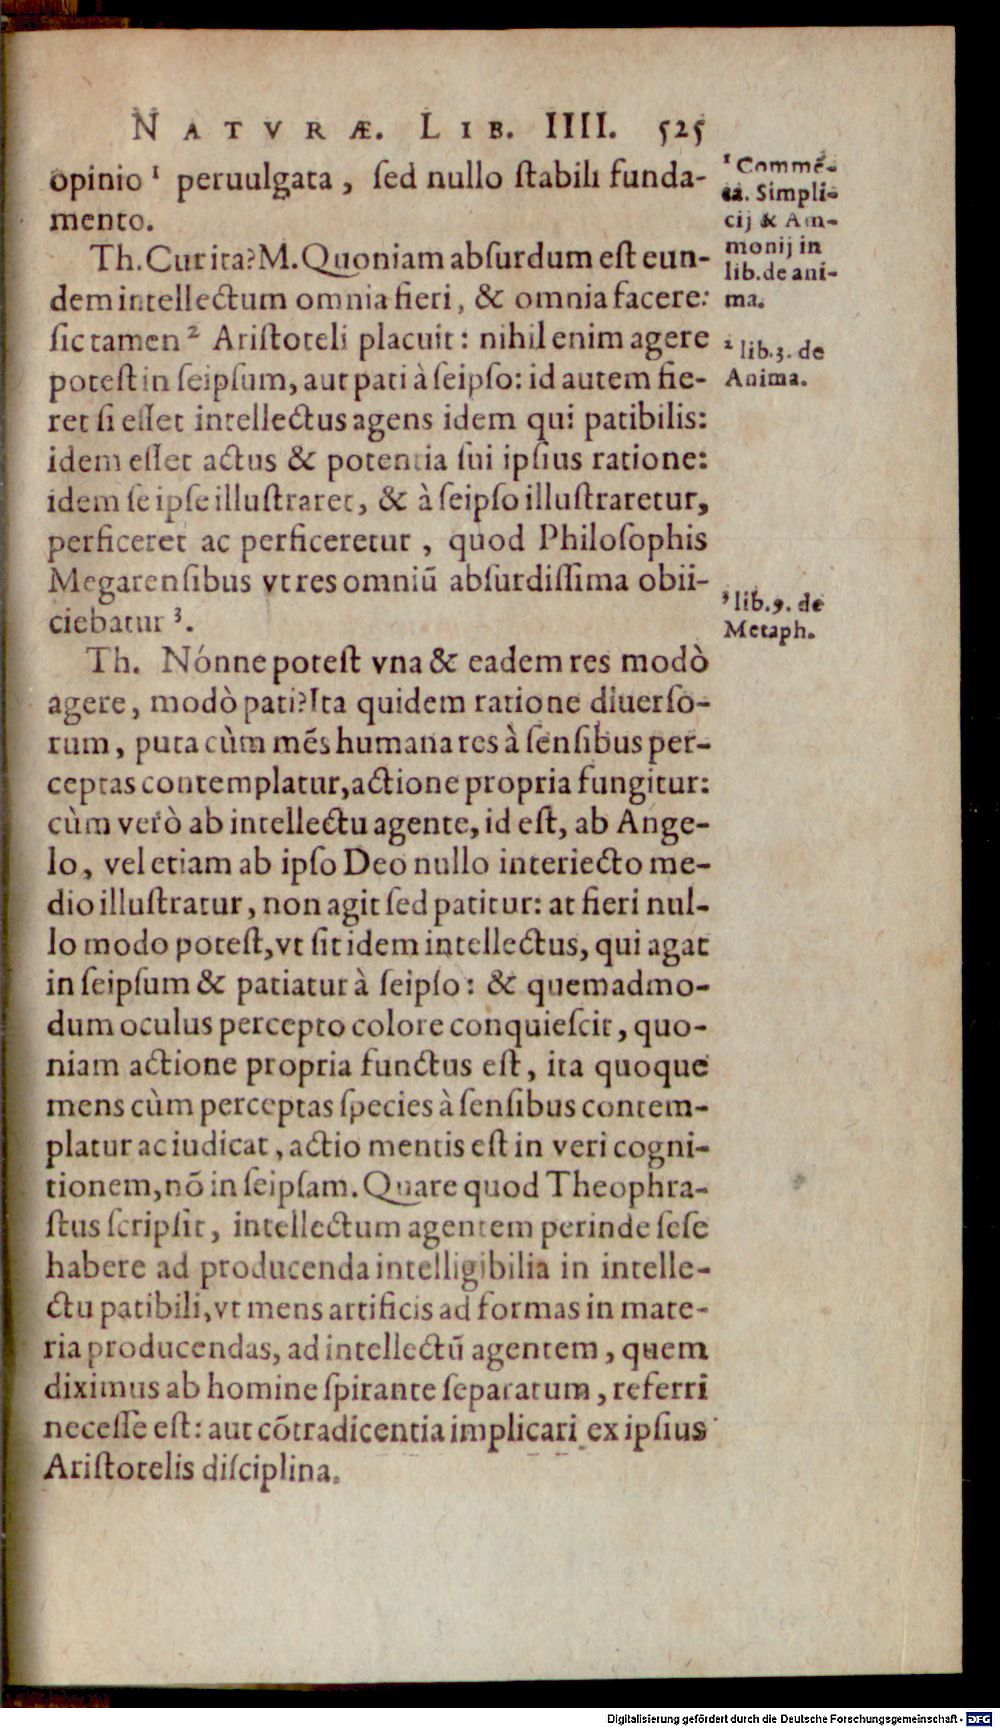 NATVRÆ. LIB. IIII. 525
opinio ¹ peruulgata, sed nullo stabili funda-
mento.
Th. Cur ita? M. Quoniam absurdum est eun-
dem intellectum omnia fieri, & omnia facere:
sic tamen ² Aristoteli placuit: nihil enim agere
potest in seipsum, aut pati à seipso: id autem fie-
ret si esset intellectus agens idem qui patibilis:
idem esset actus & potentia sui ipsius ratione:
idem se ipse illustraret, & à seipso illustraretur,
perficeret ac perficeretur, quod Philosophis
Megarensibus vt res omniū absurdissima obii-
ciebatur ³.
Th. Nónne potest vna & eadem res modò
agere, modò pati? Ita quidem ratione diuerso-
rum, puta cùm mẽs humana res à sensibus per-
ceptas contemplatur, actione propria fungitur:
cùm verò ab intellectu agente, id est, ab Ange-
lo, vel etiam ab ipso Deo nullo interiecto me-
dio illustratur, non agit sed patitur: at fieri nul-
lo modo potest, vt sit idem intellectus, qui agat
in seipsum & patiatur à seipso: & quemadmo-
dum oculus percepto colore conquiescit, quo-
niam actione propria functus est, ita quoque
mens cùm perceptas species à sensibus contem-
platur ac iudicat, actio mentis est in veri cogni-
tionem, nõ in seipsam. Quare quod Theophra-
stus scripsit, intellectum agentem perinde sese
habere ad producenda intelligibilia in intelle-
ctu patibili, vt mens artificis ad formas in mate-
ria producendas, ad intellectũ agentem, quem
diximus ab homine spirante separatum, referri
necesse est: aut cõtradicentia implicari ex ipsius
Aristotelis disciplina.
¹ Commẽ-
ta. Simpli-
cij & Am-
monij in
lib. de ani-
ma.
² lib. 3. de
Anima.
³ lib. 9. de
Metaph.
Digitalisierung gefördert durch die Deutsche Forschungsgemeinschaft - DFG